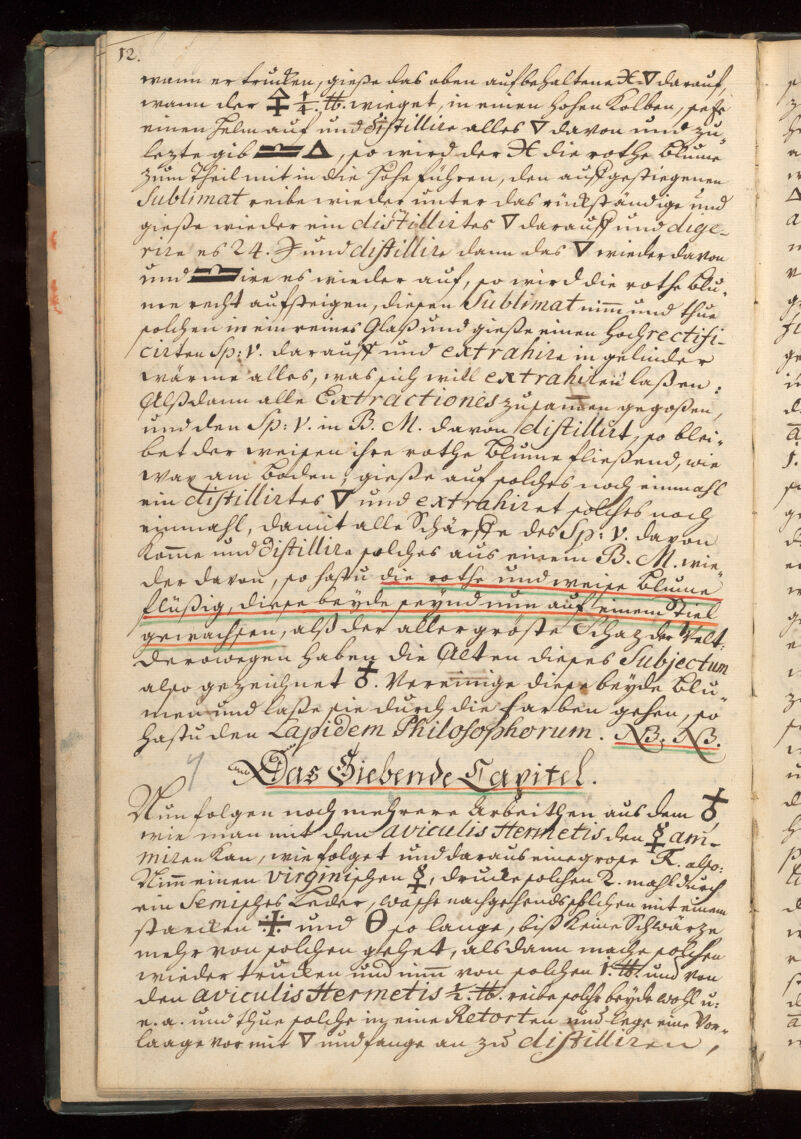 12.
wann er trucken, gieße das oben aufbehaltene ♓🜄 darauf,
wann der 🜍 ¼ ℔. wieget, in einen hohen Kolben, setze
einen Helm auf und distillire alles 🜄 davon und zu
lezte gib 🜂, so wird der ♓ die rothe Blume
zum Theil mit in die Höhe führen, den aufgestiegenen
Sublimat reibe wieder unter das rückständige und
gieße wieder ein distillirtes 🜄 darauff und dige-
rire es 24. und distillire dann das 🜄 wieder davon
und ire es wieder auf, so wird die rothe Blu-
me recht aufsteigen, diesen Sublimat nim und thue
solchen in ein reines Glaß und gieße einen hochrectifi-
cirten Sp: v. darauff und extrahire in gelinder
wärme alles, was sich will extrahiren laßen:
Alßdann alle Extractiones zusamen gegoßen,
und den Sp: v. in B. M. davon distillirt, so blei-
bet der weisen ihre rothe Blume fließend, wie
wax am Boden; gieße auf solches noch einmahl
ein distillirtes 🜄 und extrahiret solches noch
einmahl, damit alle Schärffe des Sp: v. davon
kome und distillire solches aus einem B. M. wie-
der davon, so hastu die rothe und weise Blume
flüßig, diese beyde seynd nun auf einem Stiel
gewachsen, alß der allergröste Schaz der Welt.
Derowegen haben die Alten dieses Subjectum
also gezeichnet ♁. Vereinige diese beyde Blu-
men und laße sie durch die Farben gehen, so
hastu den Lapidem Philosophorum. NB. NB.
Das Siebende Capitel.
Nun folgen noch mehrere Arbeithen aus dem ♁
wie man mit den aviculis Hermetis den ☿ ani-
miren kan, wie folget und daraus eine grose also:
Nim einen virginischen ☿, drucke solchen mahl durch
ein Semisches Leder, wasche nachgehends solchen mit einem
starcken und so lange, biß keine Schwärze
mehr von solchen gehet, als dann mache solchen
wieder trucken und nim von solchen 1. ℔. und von
den aviculis Hermetis ½. ℔. reibe solche beyde wohl u:
e. a. und thue solche in eine Retorten und lege eine Vor-
laage vor mit 🜄 und fange an zu distilliren,